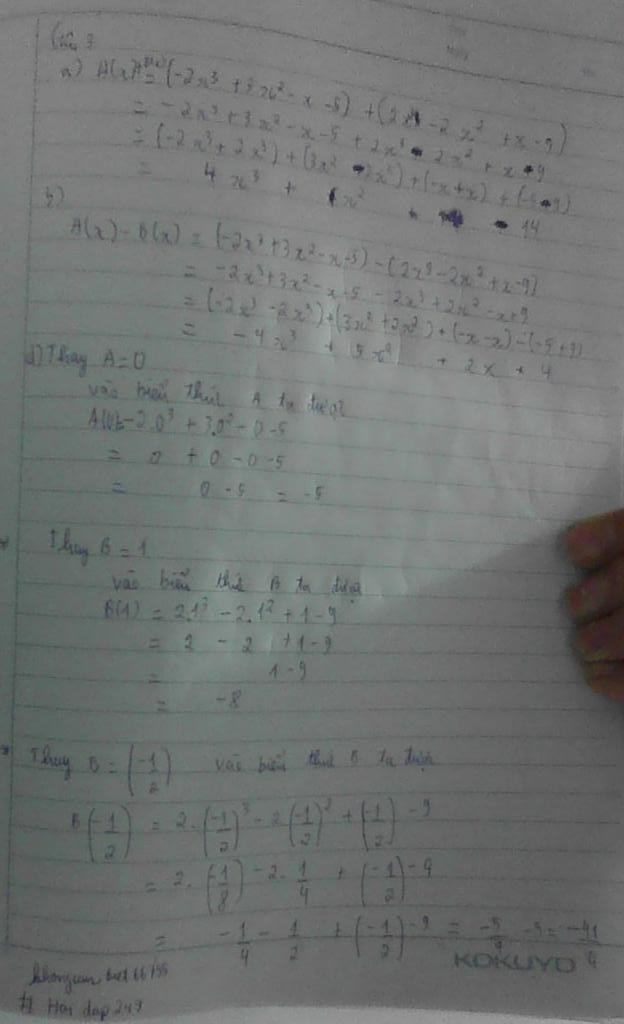 Câu 3
a) A(x)+B(x) = (-2x³ + 3x² - x - 5) + (2x³ - 2x² + x - 9)
= -2x³ + 3x² - x - 5 + 2x³ - 2x² + x - 9
= (-2x³ + 2x³) + (3x² - 2x²) + (-x + x) + (-5 - 9)
= 4x³ + 1x² - 14
b)
A(x) - B(x) = (-2x³ + 3x² - x - 5) - (2x³ - 2x² + x - 9)
= -2x³ + 3x² - x - 5 - 2x³ + 2x² - x + 9
= (-2x³ - 2x³) + (3x² + 2x²) + (-x - x) - (-5 + 9)
= -4x³ + 5x² + 2x + 4
d) Thay A = 0
vào biểu thức A ta được
A(0) = -2.0³ + 3.0² - 0 - 5
= 0 + 0 - 0 - 5
= 0 - 5 = -5
* Thay B = 1
vào biểu thức B ta được
B(1) = 2.1³ - 2.1² + 1 - 9
= 2 - 2 + 1 - 9
= 1 - 9
= -8
* Thay B = (-1/2) vào biểu thức B ta được
B(-1/2) = 2.(-1/2)³ - 2(-1/2)² + (-1/2) - 9
= 2.(-1/8) - 2.1/4 + (-1/2) - 9
= -1/4 - 1/2 + (-1/2) - 9 = -5/4 - 9 = -41/4
KOKUYO
Hoi dap 247